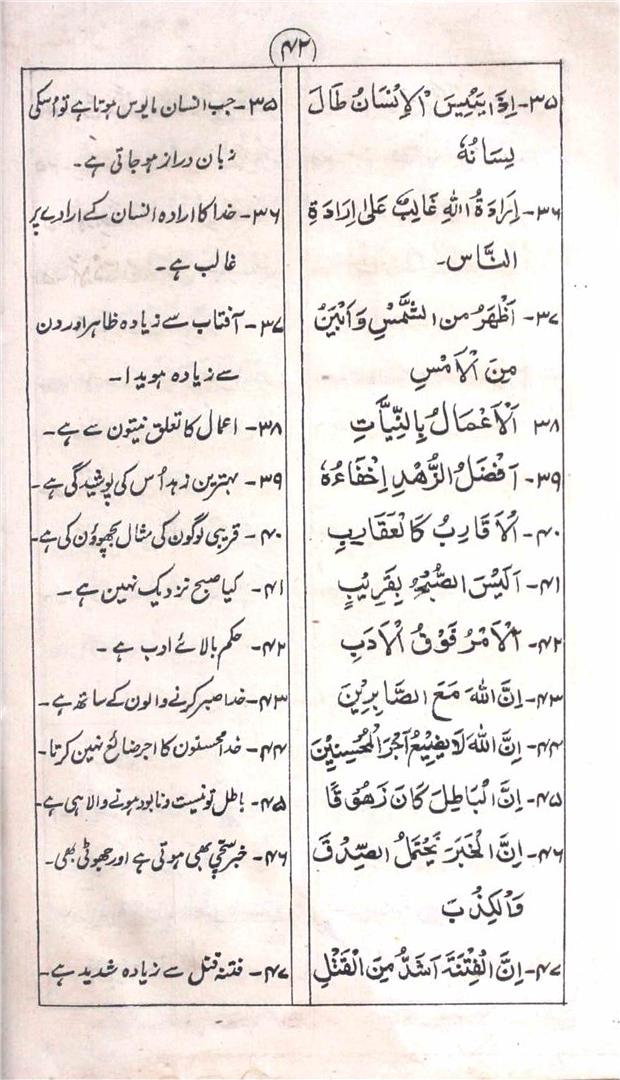 ۴۲
۳۵- اِذَا يَئِيسَ الْاِنْسَانُ طَالَ
لِسَانُهٗ
۳۵- جب انسان مایوس ہوتا ہے تو اُسکی
زبان دراز ہو جاتی ہے۔
۳۶- اِرَادَةُ اللهِ غَالِبٌ عَلیٰ اِرَادَةِ
النَّاس۔
۳۶- خدا کا ارادہ انسان کے ارادے پر
غالب ہے۔
۳۷- اَظْهَرُ من الشَّمْسِ وَاَبْيَنُ
مِنَ الْاَمْسِ
۳۷- آفتاب سے زیادہ ظاہر اور دن
سے زیادہ ہویدا۔
۳۸ اَلْاَعْمَالُ بِالنِّيَّاتِ
۳۸- اعمال کا تعلق نیتون سے ہے۔
۳۹- اَفْضَلُ الزُّهْدِ اِخْفَاءُهٗ
۳۹- بہترین زہد اُس کی پوشیدگی ہے۔
۴۰- اَلْاَقَارِبُ كَالْعَقَارِبِ
۴۰- قریبی لوگون کی مثال بچھوؤن کی ہے۔
۴۱- اَلَيْسَ الصُّبْحُ بِقَرِيْبٍ
۴۱- کیا صبح نزدیک نہین ہے۔
۴۲- اَلْاَمْرُ فَوْقُ الْاَدَبِ
۴۲- حکم بالائے ادب ہے۔
۴۳- اِنَّ اللهَ مَعَ الصَّابِرِيْنَ
۴۳- خدا صبر کرنے والون کے ساتھ ہے۔
۴۴- اِنَّ اللهَ لَا يُضِيْعُ اَجْرَ الْمُحْسِنِيْنَ
۴۴- خدا محسنون کا اجر ضائع نہین کرتا۔
۴۵- اِنَّ الْبَاطِلَ كَانَ زَهُوْقًا
۴۵- باطل تو نیست و نابود ہونے والا ہی ہے۔
۴۶- اِنَّ الْخَبَرَ يَحْتَمِلُ الصِّدْقَ
وَالْكِذْبَ
۴۶- خبر سچی بھی ہوتی ہے اور جھوٹی بھی۔
۴۷- اِنَّ الْفِتْنَةَ اَشَدُّ مِنَ الْقَتْلِ
۴۷- فتنہ قتل سے زیادہ شدید ہے۔